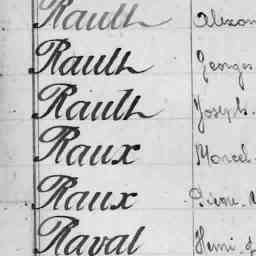 Rault Alexan
Rault Georges
Rault Joseph.
Raux Marcel.
Raux Pierre.
Raval Henri. J